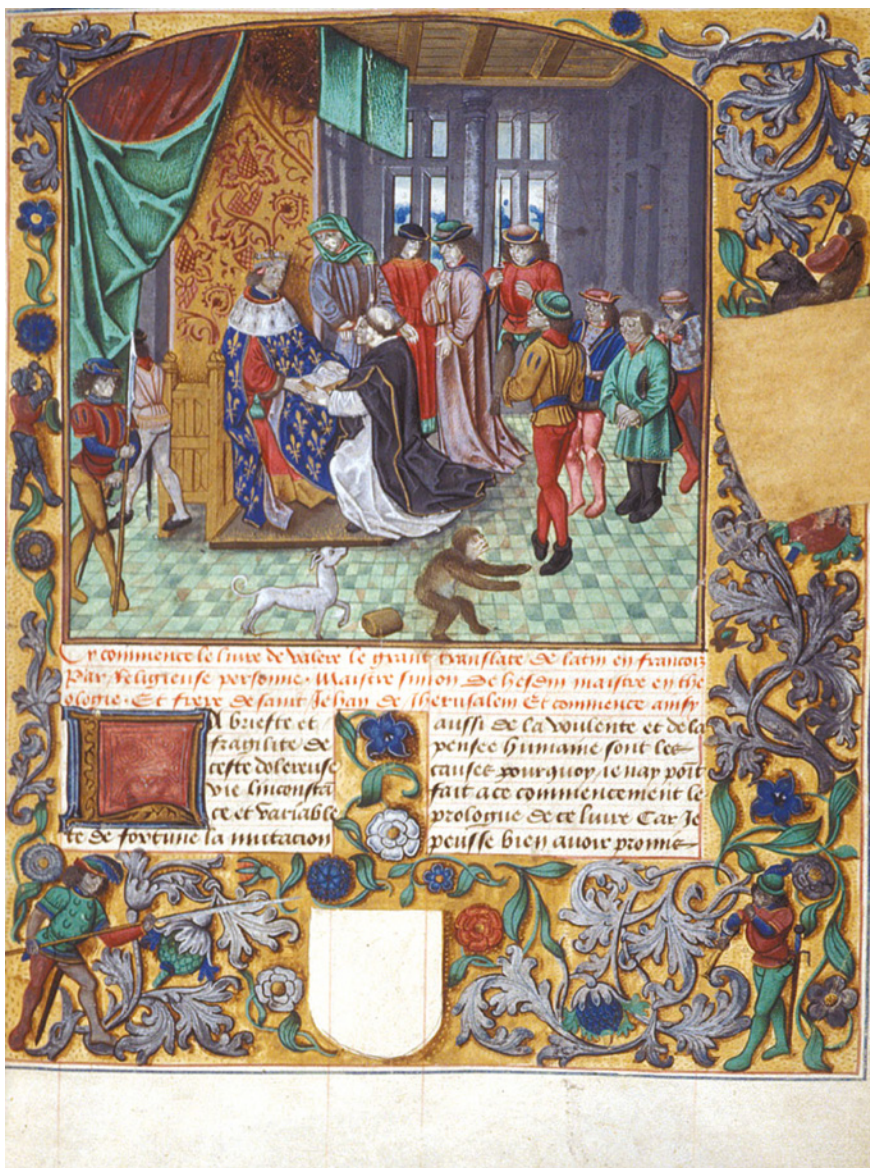 Cy commence le liure de valere le grant translate de latin en francois
Par Religieuse personne. Maistre simon de hesdin maistre en the
ologie. Et frere de saint Jehan de Jherusalem Et commence ainsy
A briefte et
fragilite de
ceste dolereuse
vie linconsta
ce et variable
te de fortune la mutacion
aussi de la voulente et de la
pensee humaine sont les
causes pourquoy ie nay point
fait a ce commencement le
prologue de ce liure Car Je
peusse bien auoir promis